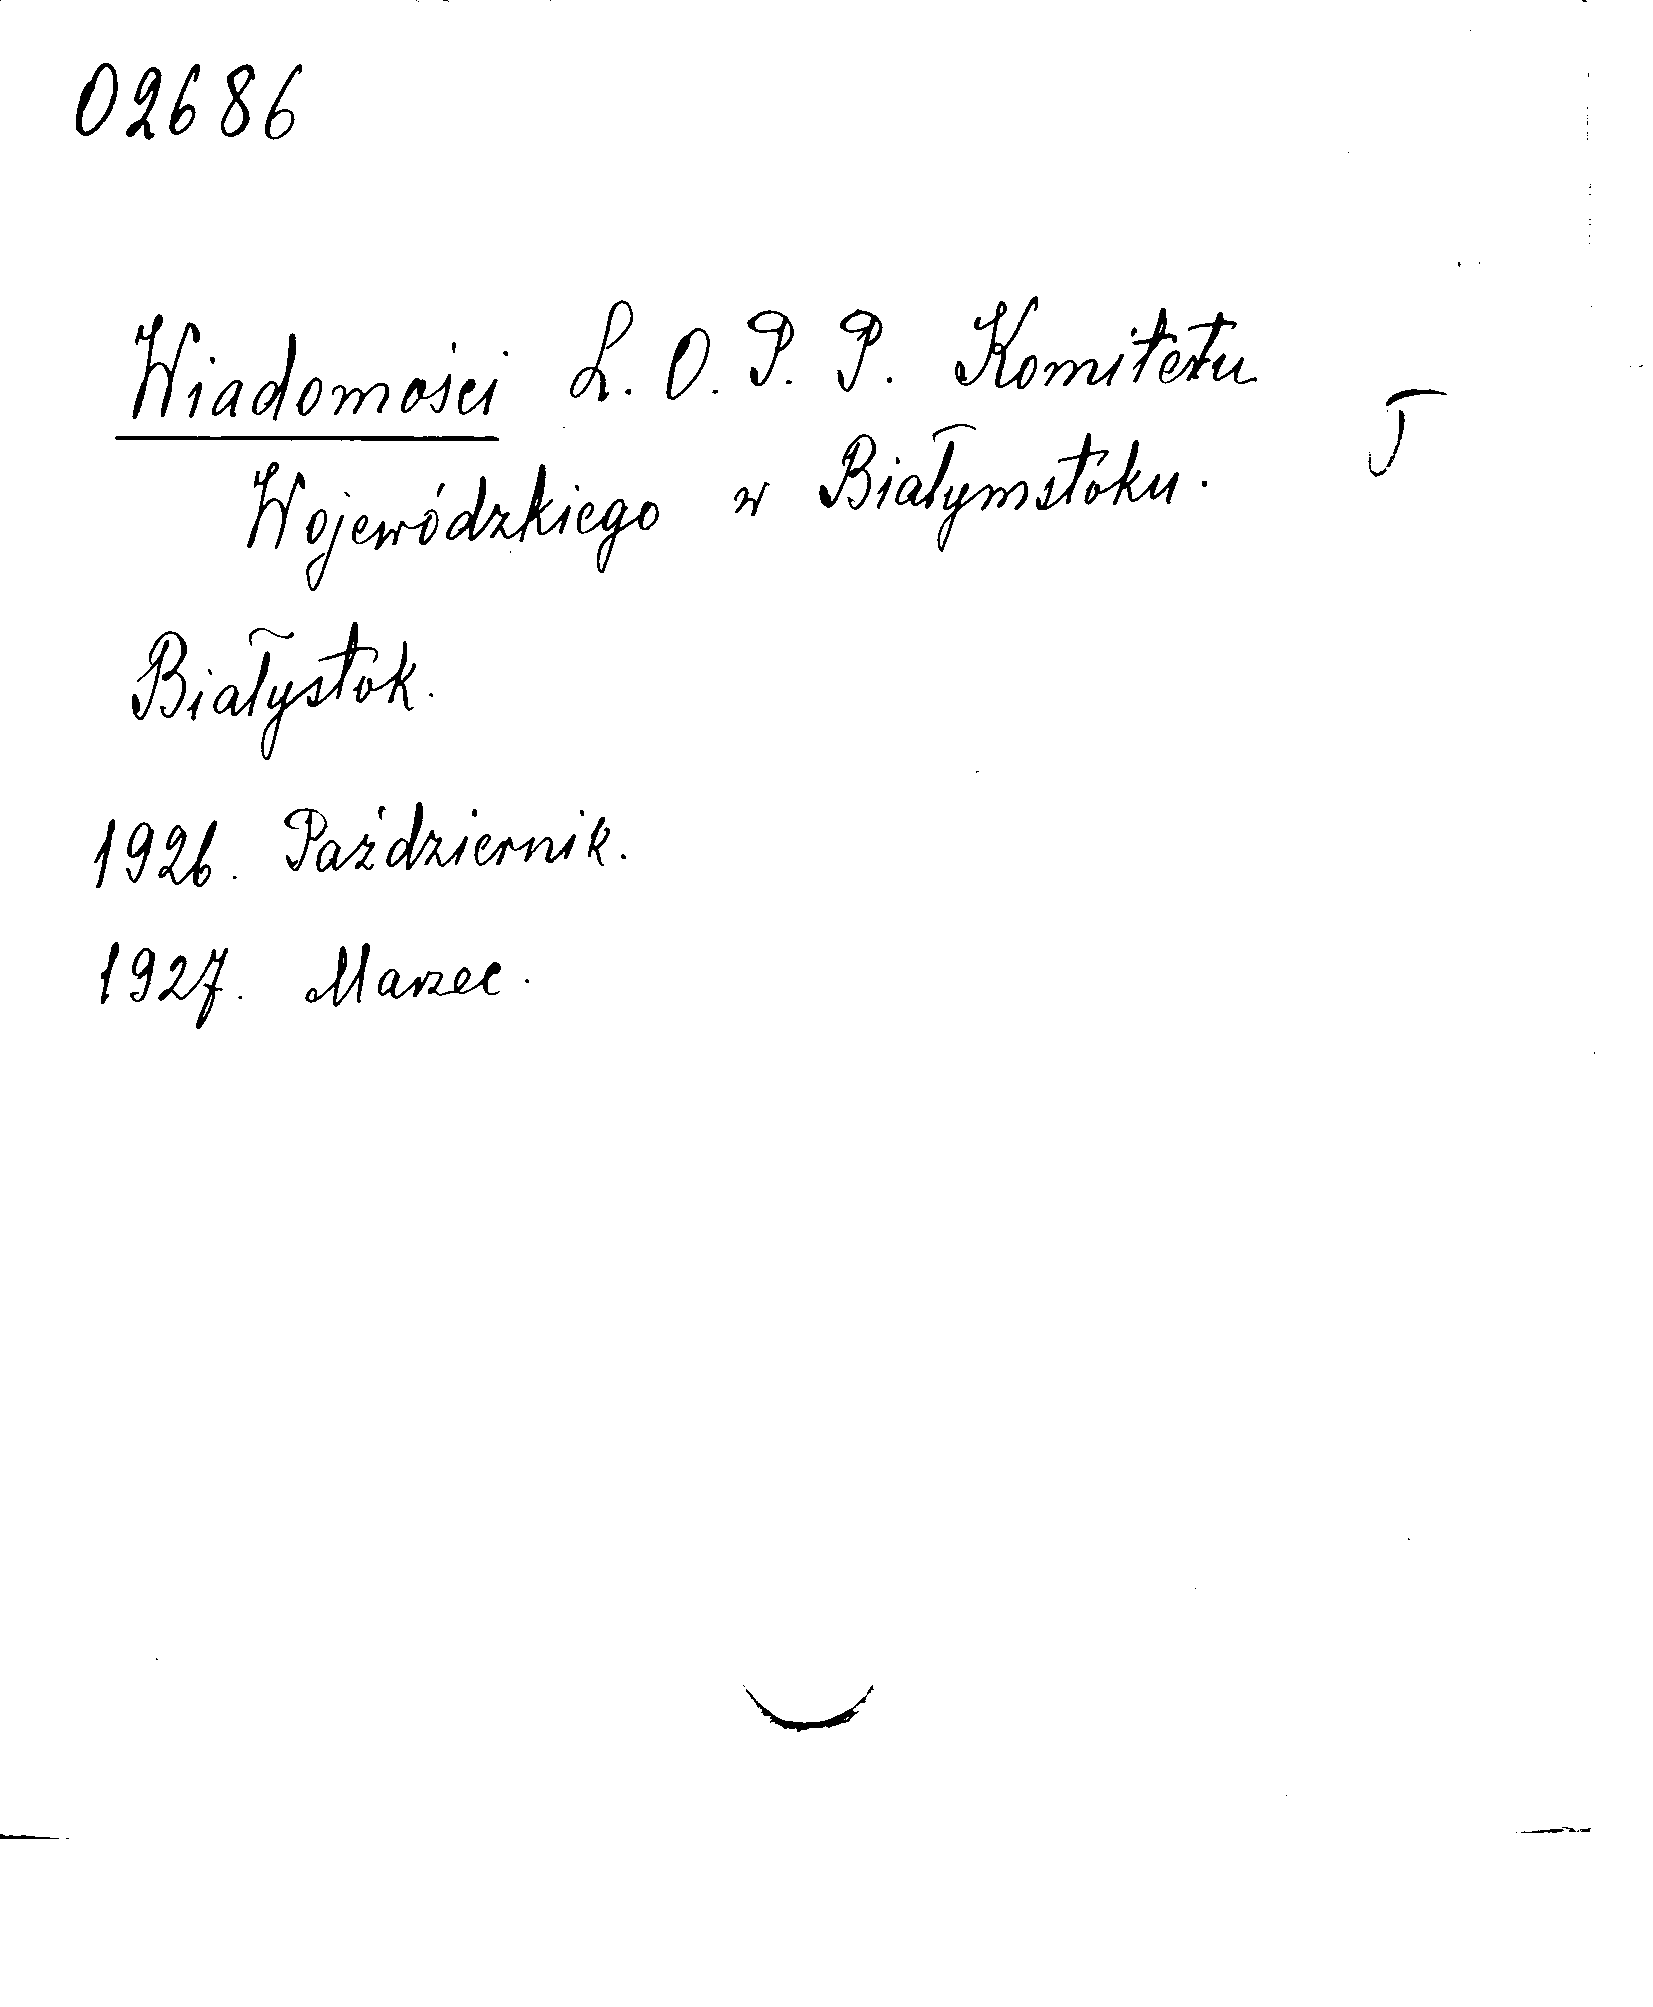 02686
Wiadomości L. O. P. P. Komitetu
J
Wojewódzkiego w Białymstoku.
Białystok.
1926. Październik.
1927. Marzec.